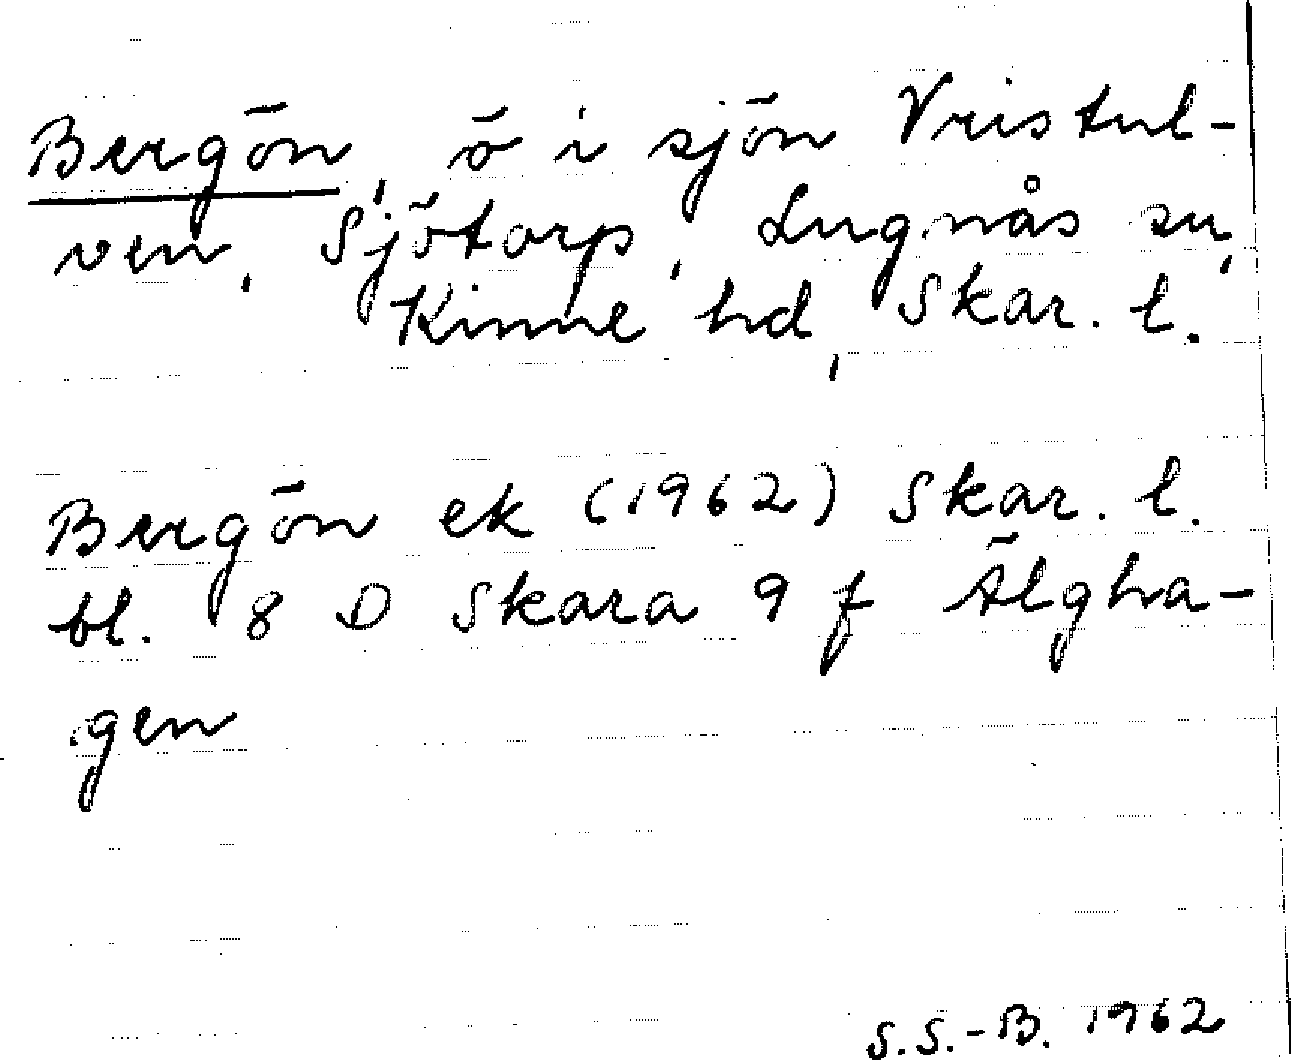 Bergön, ö i sjön Vristul-
ven, Sjötorp, Lugnås sn,
Kinne hd, Skar. l.
Bergön ek (1962) Skar. l.
bl. 8 D Skara 9 f Älgha-
gen
S.S.-B. 1962